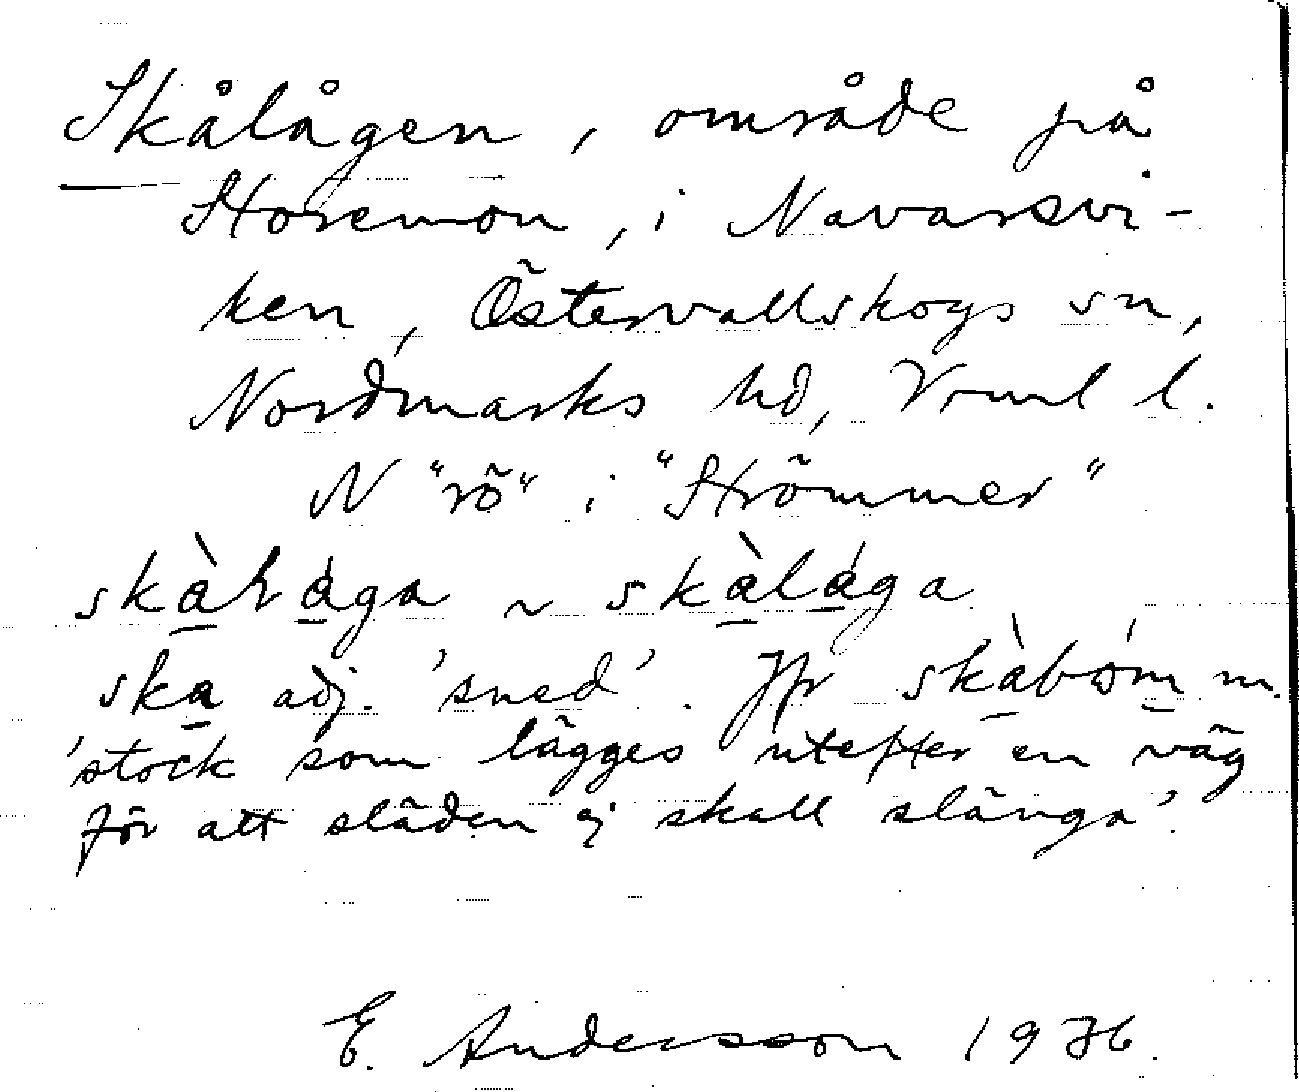 Skålågen, område på
Storemon, i Navarsvi-
ken, Östervallskogs sn,
Nordmarks hd, Vrml l.
N "rö" i "Strömmer"
skàl̲ága ~ skàlága
ska̲ adj. 'sned'. Jfr skàbóm m.
'stock som lägges utefter en väg
för att släden ej skall slänga'.
E. Andersson 1936.